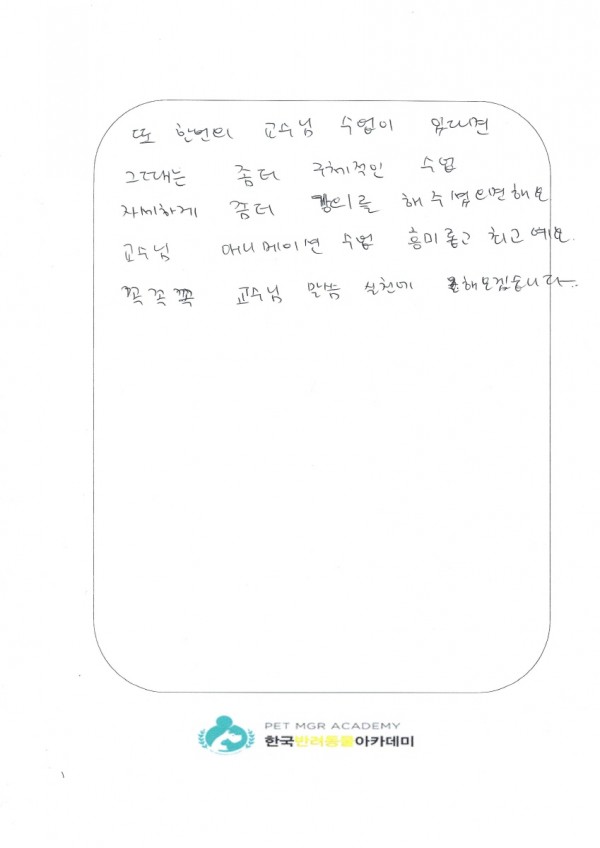 또 한번의 교수님 수업이 있다면
그때는 좀더 구체적인 수업
자세하게 쫌더 강의를 해주셨으면해요
교수님 애니메이션 수업 흥미롭고 최고예요.
꼭꼭꼭 교수님 말씀 실천에 해보겠습니다..
PET MGR ACADEMY
한국반려동물아카데미